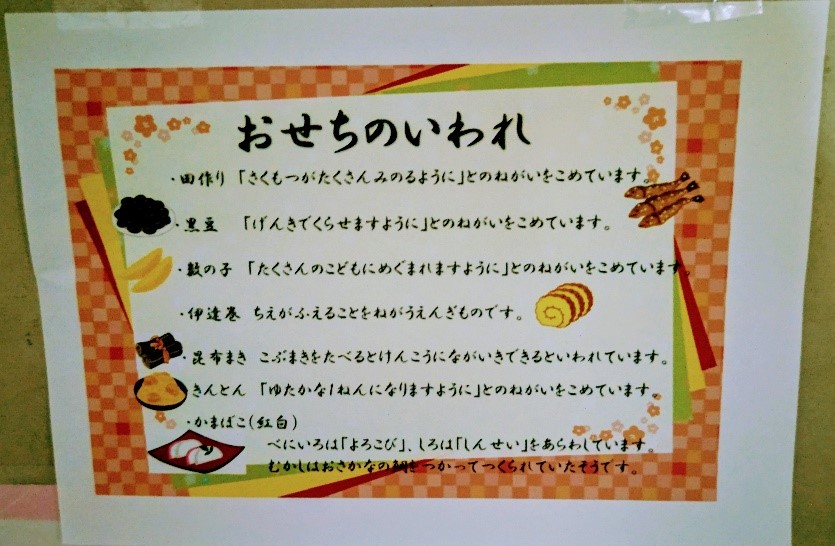 おせちのいわれ
・田作り 「さくもつがたくさんみのるように」とのねがいをこめています。
・黒豆 「げんきでくらせますように」とのねがいをこめています。
・数の子 「たくさんのこどもにめぐまれますように」とのねがいをこめています。
・伊達巻 ちえがふえることをねがうえんぎものです。
・昆布まき こぶまきをたべるとけんこうにながいきできるといわれています。
きんとん 「ゆたかな1ねんになりますように」とのねがいをこめています。
・かまぼこ(紅白)
べにいろは「よろこび」、しろは「しんせい」をあらわしています。
むかしはおさかなの鯛をつかってつくられていたそうです。